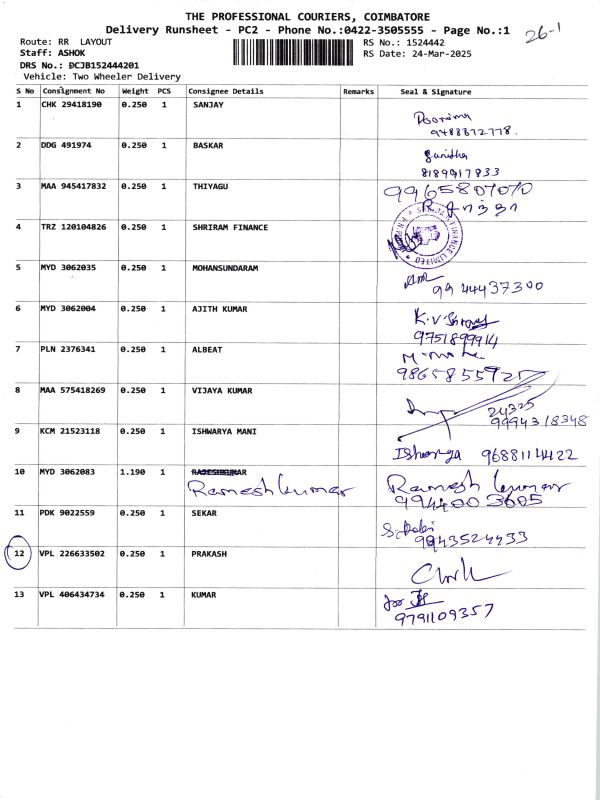 THE PROFESSIONAL COURIERS, COIMBATORE
Delivery Runsheet - PC2 - Phone No.:0422-3505555 - Page No.:1
26-1
Route: RR LAYOUT
RS No.: 1524442
Staff: ASHOK
RS Date: 24-Mar-2025
DRS No.: DCJB152444201
Vehicle: Two Wheeler Delivery
S No Consignment No Weight PCS Consignee Details Remarks Seal & Signature
1 CHK 29418190 0.250 1 SANJAY
9488872778.
2 DDG 491974 0.250 1 BASKAR
8189917833
3 MAA 945417832 0.250 1 THIYAGU 9965807070
4 TRZ 120104826 0.250 1 SHRIRAM FINANCE
5 MYD 3062035 0.250 1 MOHANSUNDARAM
9944437300
6 MYD 3062004 0.250 1 AJITH KUMAR
9751899914
7 PLN 2376341 0.250 1 ALBEAT
9865855925
8 MAA 575418269 0.250 1 VIJAYA KUMAR
24325
9994318348
9 KCM 21523118 0.250 1 ISHWARYA MANI
9688114422
10 MYD 3062083 1.190 1 RAJESHKUMAR
Ramesh kumar Ramesh kumar
994400 3605
11 PDK 9022559 0.250 1 SEKAR
9943524433
12 VPL 226633502 0.250 1 PRAKASH
13 VPL 406434734 0.250 1 KUMAR
9791109357